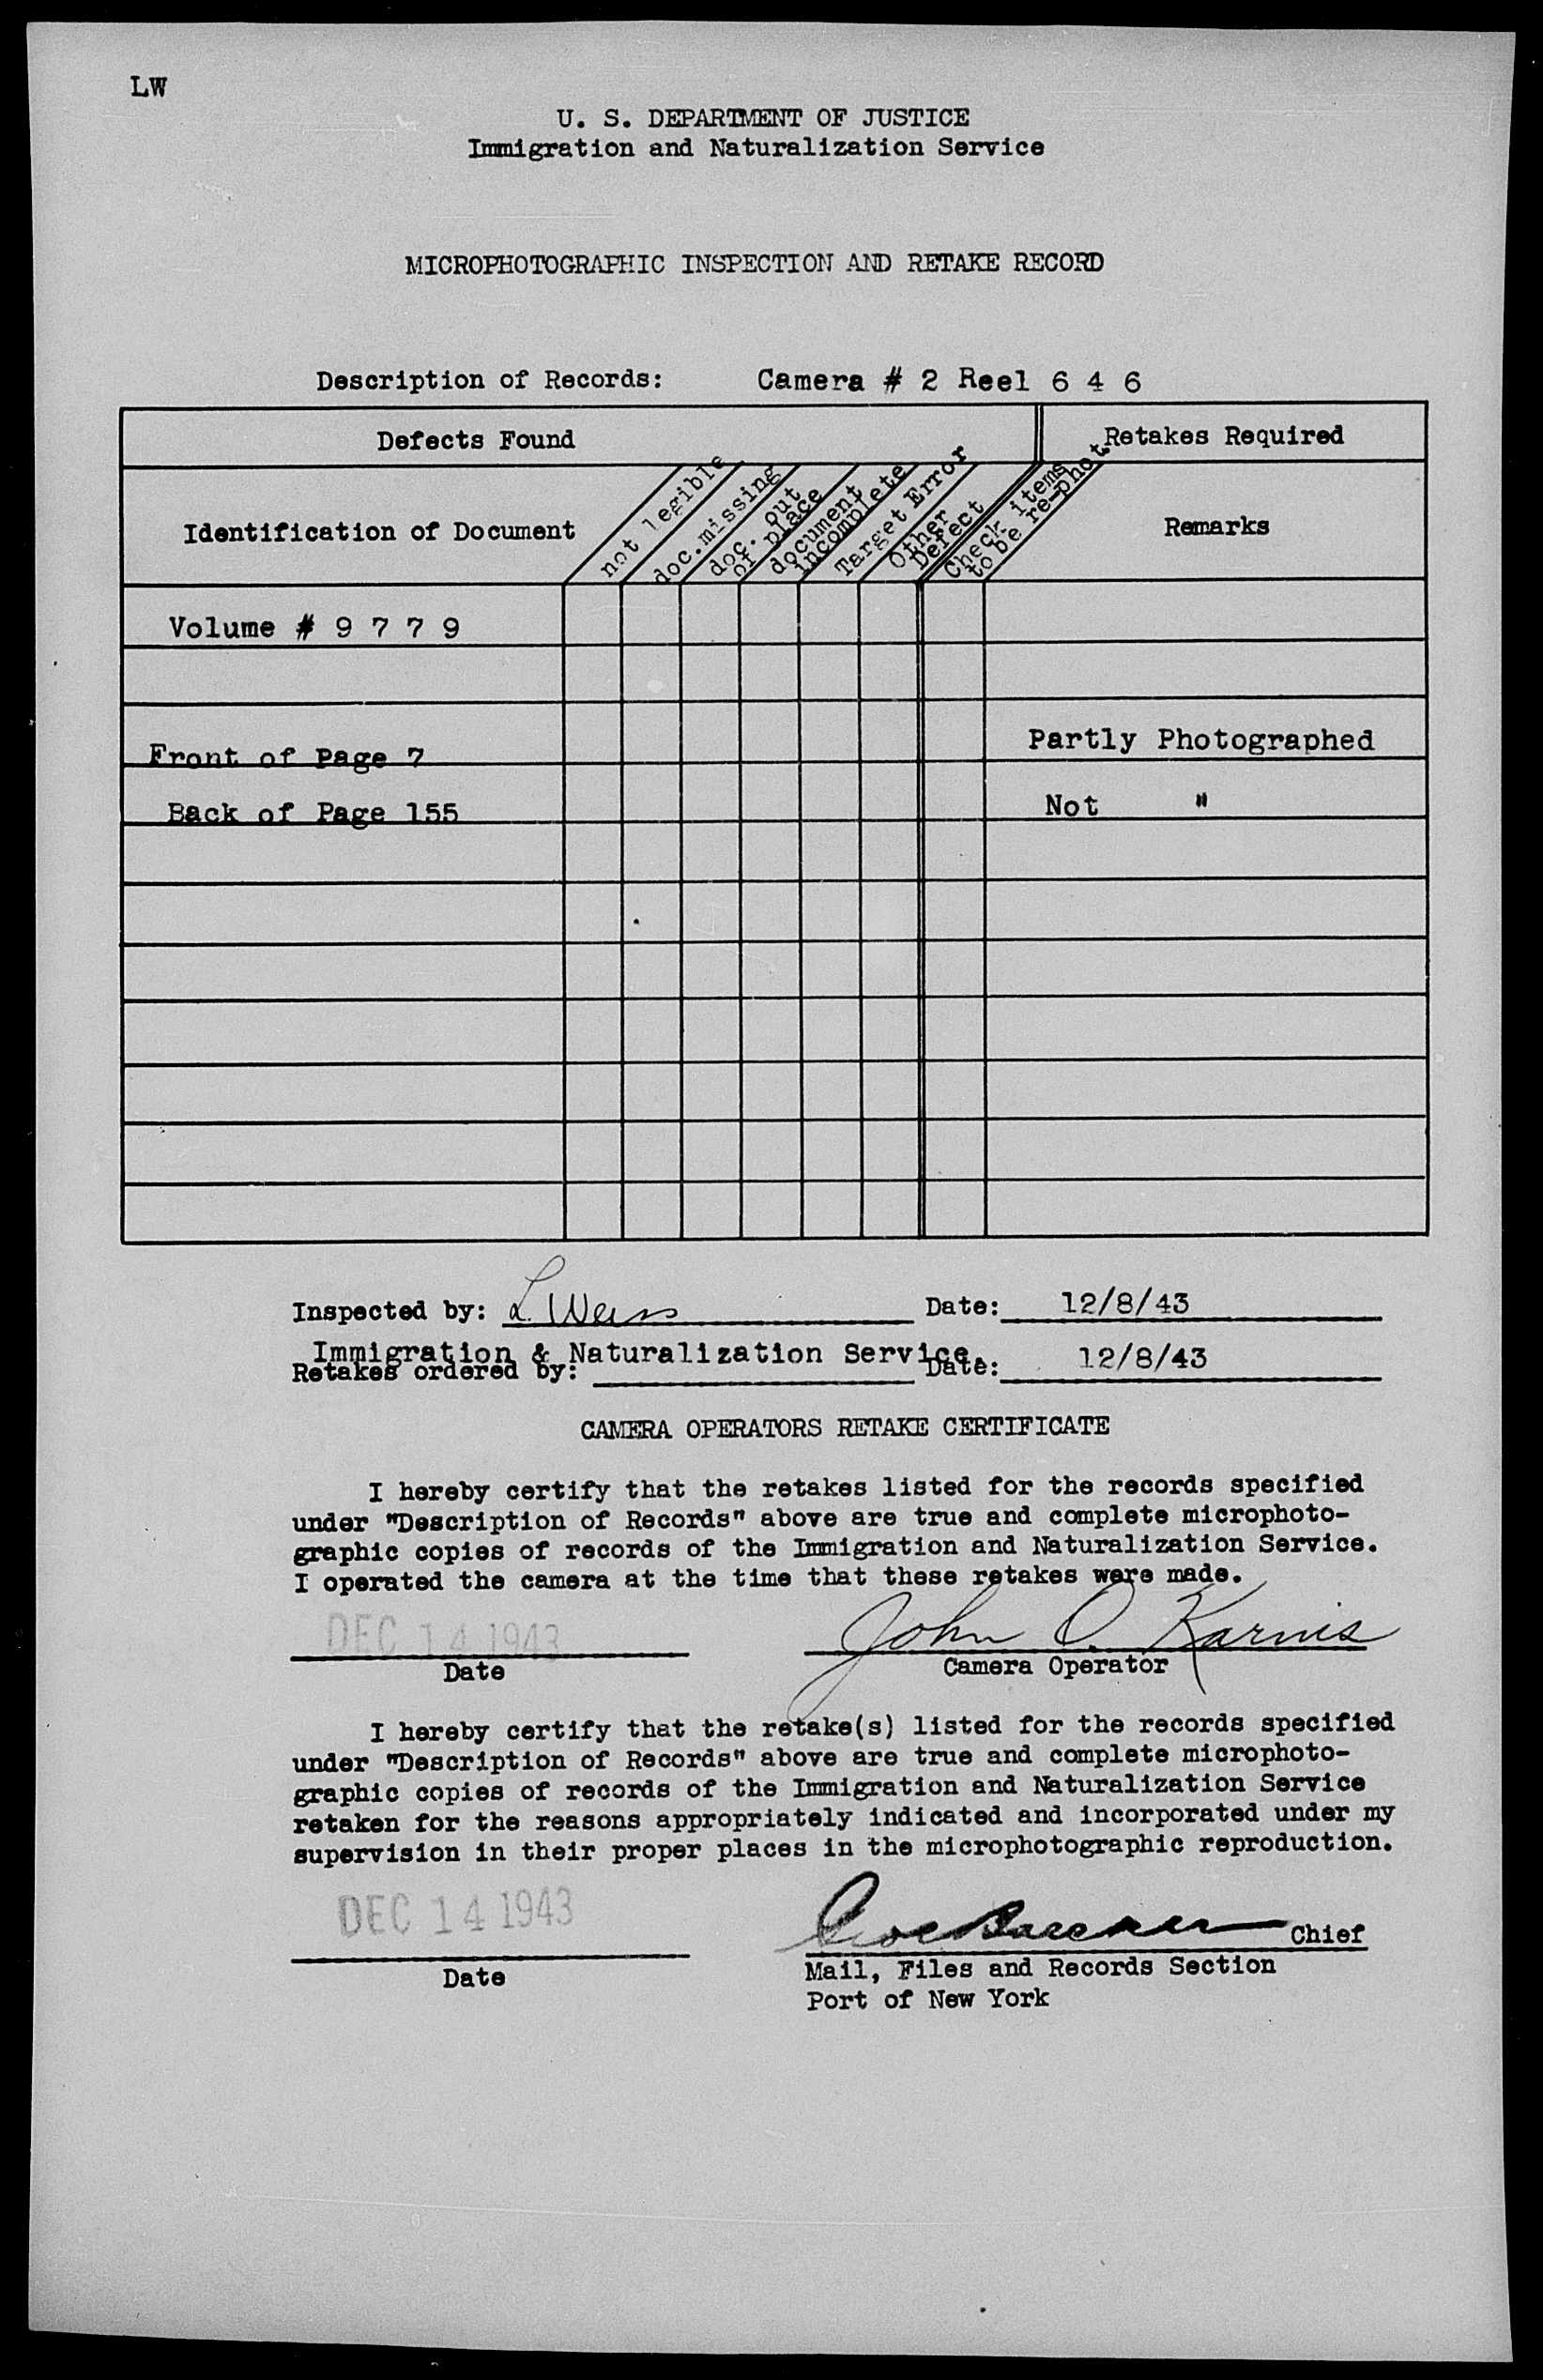 LW
U. S. DEPARTMENT OF JUSTICE
Immigration and Naturalization Service
MICROPHOTOGRAPHIC INSPECTION AND RETAKE RECORD
Description of Records: Camera # 2 Reel 6 4 6
Defects Found Retakes Required
Identification of Document
not legible
doc.missing
doc. out
of place
document
incomplete
Target Error
Other
Defect
Check items
to be re-phot.
Remarks
Volume # 9 7 7 9
Front of Page 7 Partly Photographed
Back of Page 155 Not "
Inspected by: L. Weiss Date: 12/8/43
Immigration & Naturalization Service.
Retakes ordered by: Date: 12/8/43
CAMERA OPERATORS RETAKE CERTIFICATE
I hereby certify that the retakes listed for the records specified
under "Description of Records" above are true and complete microphoto-
graphic copies of records of the Immigration and Naturalization Service.
I operated the camera at the time that these retakes were made.
DEC 14 1943 John O. Karnis
Date Camera Operator
I hereby certify that the retake(s) listed for the records specified
under "Description of Records" above are true and complete microphoto-
graphic copies of records of the Immigration and Naturalization Service
retaken for the reasons appropriately indicated and incorporated under my
supervision in their proper places in the microphotographic reproduction.
DEC 14 1943 Chief
Date Mail, Files and Records Section
Port of New York